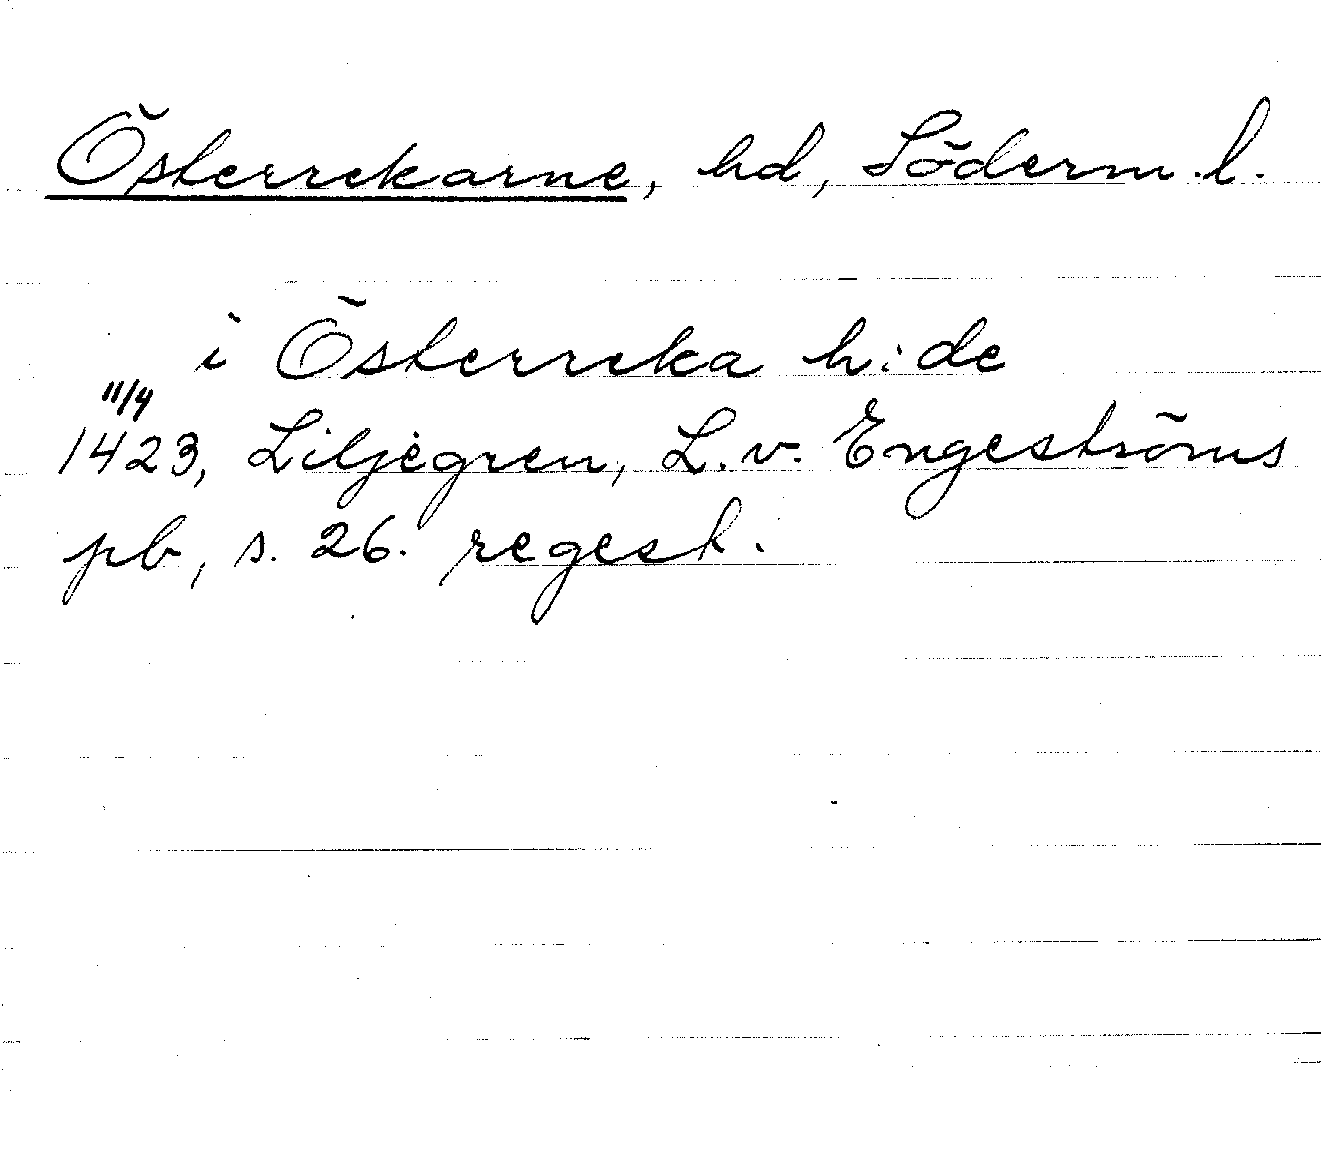 Österrekarne, hd, Söderm. l.
i Österreka h:de
11/4
1423, Liljegren, L. v. Engeströms
pb, s. 26. regest.